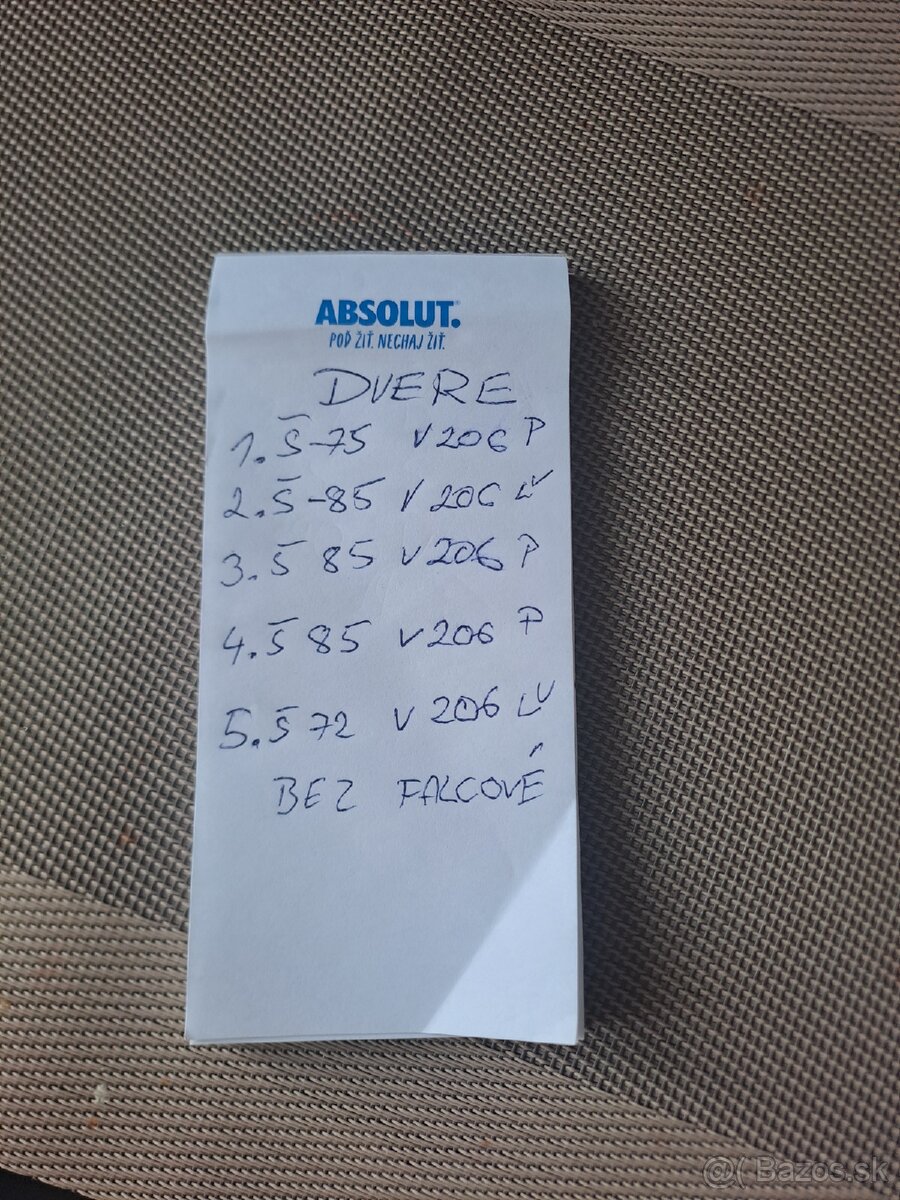 ABSOLUT.
POĎ ŽIŤ. NECHAJ ŽIŤ.
DVERE
1. Š-75 V206 P
2. Š-85 V206 ĽV
3. Š 85 V206 P
4. Š 85 V206 P
5. Š 72 V206 ĽV
BEZ FALCOVÉ
@( Bazos.sk